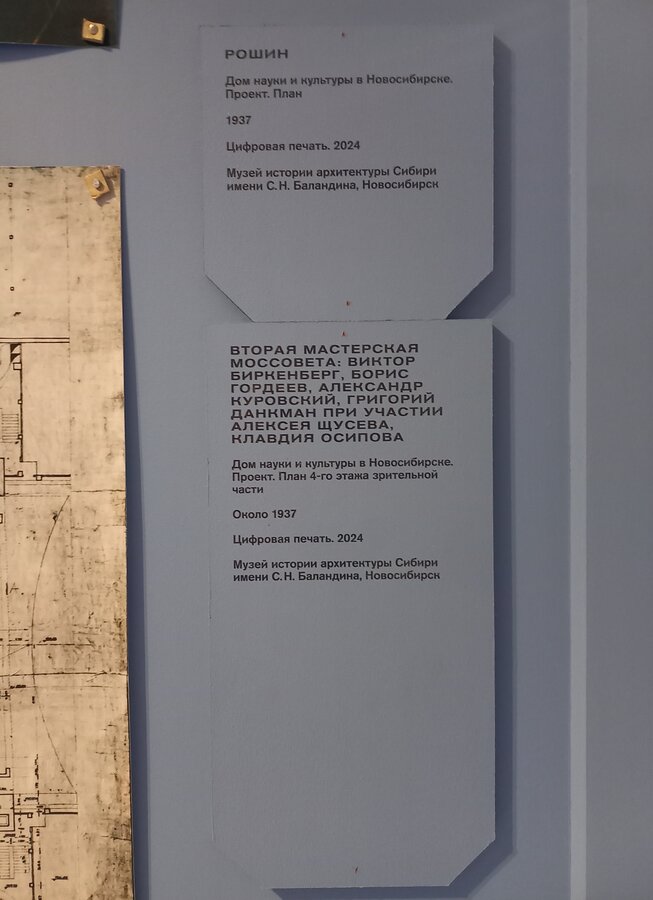 РОШИН
Дом науки и культуры в Новосибирске.
Проект. План
1937
Цифровая печать. 2024
Музей истории архитектуры Сибири
имени С.Н. Баландина, Новосибирск
ВТОРАЯ МАСТЕРСКАЯ
МОССОВЕТА: ВИКТОР
БИРКЕНБЕРГ, БОРИС
ГОРДЕЕВ, АЛЕКСАНДР
КУРОВСКИЙ, ГРИГОРИЙ
ДАНКМАН ПРИ УЧАСТИИ
АЛЕКСЕЯ ЩУСЕВА,
КЛАВДИЯ ОСИПОВА
Дом науки и культуры в Новосибирске.
Проект. План 4-го этажа зрительной
части
Около 1937
Цифровая печать. 2024
Музей истории архитектуры Сибири
имени С.Н. Баландина, Новосибирск